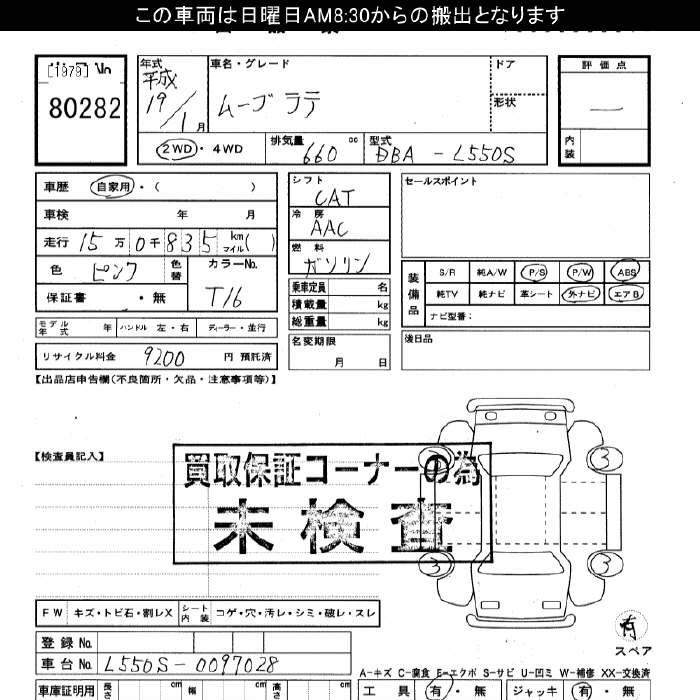 この車両は日曜日AM8:30からの搬出となります
[1979]
80282
年式
平成
19/1月
車名・グレード
ムーブ ラテ
ドア
形状
評価点
—
内装
2WD・4WD
排気量
660 cc
型式
DBA - L550S
車歴 自家用・( )
車検 年 月
走行 15万0千835 km マイル( )
色 ピンク 色替
カラーNo.
T16
保証書 ・無
モデル年式 年 ハンドル 左・右 ディーラー・並行
リサイクル料金 9200 円 預託済
シフト
CAT
冷房
AAC
燃料
ガソリン
乗車定員 名
積載量 kg
総重量 kg
名変期限
月 日
セールスポイント
装備品
S/R 純A/W P/S P/W ABS
純TV 純ナビ 革シート 外ナビ エアB
ナビ型番:
後日品
【出品店申告欄(不良箇所・欠品・注意事項等)】
【検査員記入】
買取保証コーナーの為
未検査
3 3
3 3
有
スペア
FW キズ・トビ石・割レX シート内装 コゲ・穴・汚レ・シミ・破レ・スレ
登録No.
車台No. L550S-0097028
A-キズ C-腐食 E-エクボ S-サビ U-凹ミ W-補修 XX-交換済
車庫証明用 長さ cm 幅 cm 高さ cm
工具 有・無 ジャッキ 有・無